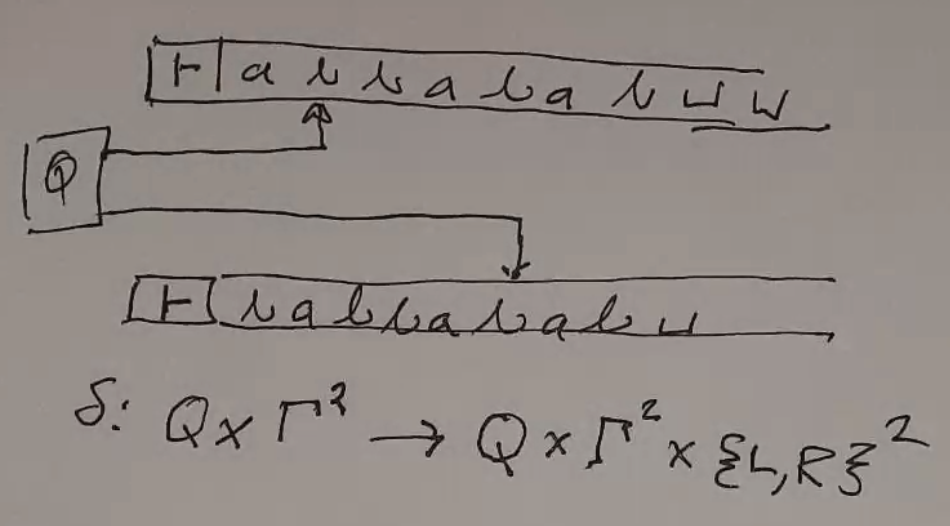 ⊢ a b b a b a b ⊔ ⊔
Q
⊢ b a b b a b a b ⊔
δ: Q × Γ² → Q × Γ² × {L,R}²